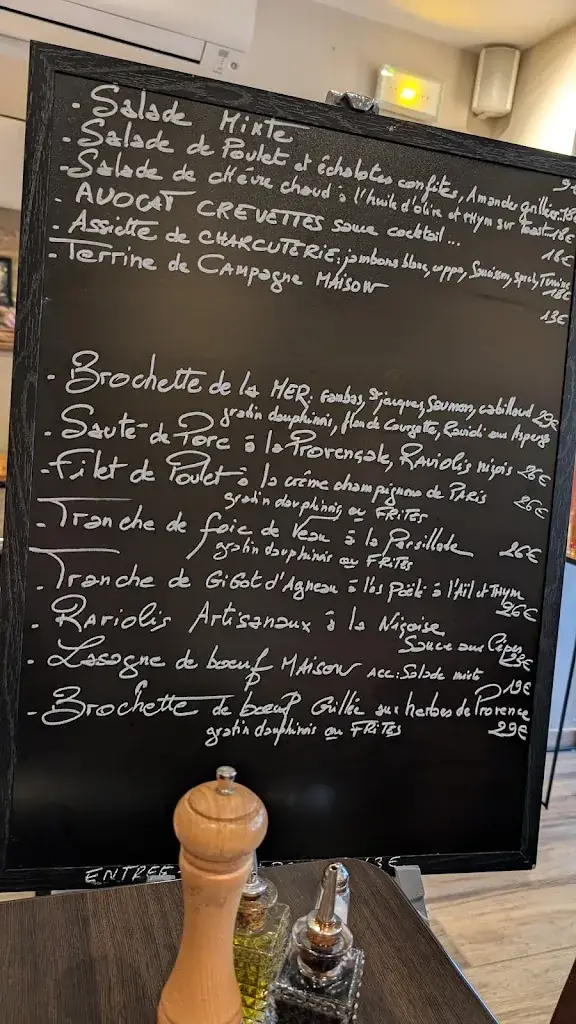 . Salade Mixte
. Salade de Poulet et échalotes confites, Amandes grillées. 18€
- Salade de chèvre chaud à l'huile d'olive et thym sur Toast 18€
. AVOCAT CREVETTES sauce cocktail... 16€
. Assiette de CHARCUTERIE: jambons blanc, coppa, Saucisson, speck, Terrine 18€
- Terrine de Campagne MAISON 13€
. Brochette de la MER: Gambas, St jacques, Saumon, cabillaud 29€
gratin dauphinois, flan de Courgette, Ravioli aux Asperges
. Sauté de Porc à la Provençale, Raviolis niçois 26€
- Filet de Poulet à la crème champignons de PARIS 26€
gratin dauphinois ou FRITES
. Tranche de foie de Veau à la Persillade 26€
gratin dauphinois ou FRITES
. Tranche de Gigot d'Agneau à l'os poêlé à l'Ail et THYM 26€
. Raviolis Artisanaux à la Niçoise
Sauce aux Cèpes 25€
. Lasagne de boeuf MAISON acc: Salade mixte 19€
- Brochette de boeuf Grillée aux herbes de Provence 29€
gratin dauphinois ou FRITES
ENTREE